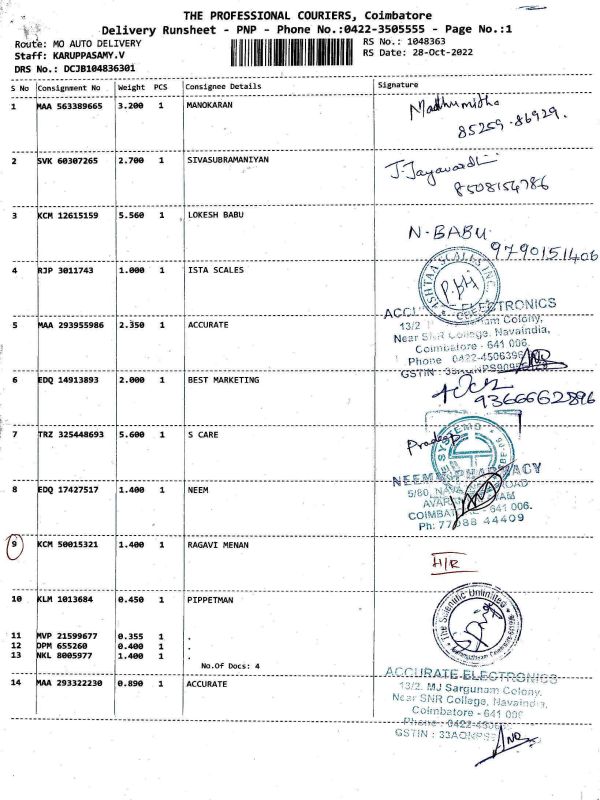 THE PROFESSIONAL COURIERS, Coimbatore
Delivery Runsheet - PNP - Phone No.:0422-3505555 - Page No.:1
Route: MO AUTO DELIVERY
RS No.: 1048363
Staff: KARUPPASAMY.V
RS Date: 28-Oct-2022
DRS No.: DCJB104836301
S No Consignment No Weight PCS Consignee Details Signature
1 MAA 563389665 3.200 1 MANOKARAN
Madhumitha
85259-86929.
2 SVK 60307265 2.700 1 SIVASUBRAMANIYAN
8508154786
3 KCM 12615159 5.560 1 LOKESH BABU
N-BABU
9790151406
4 RJP 3011743 1.000 1 ISTA SCALES
ISHTAA SCALES INC.
ACCURATE ELECTRONICS
5 MAA 293955986 2.350 1 ACCURATE
13/2 Colony,
Near SNR College, Navaindia,
Coimbatore - 641 006.
Phone 0422-4506396
GSTIN :
6 EDQ 14913893 2.000 1 BEST MARKETING
9366662896
7 TRZ 325448693 5.600 1 S CARE
Pradeep
SYSTEMS
8 EDQ 17427517 1.400 1 NEEM
NEEM PHARMACY
5/80, ROAD
COIMBATORE - 641 006.
Ph: 77088 44409
9 KCM 50015321 1.400 1 RAGAVI MENAN
H/R
10 KLM 1013684 0.450 1 PIPPETMAN
The Scientific Unlimited
11 MVP 21599677 0.355 1 .
12 DPM 655260 0.400 1 .
13 NKL 8005977 1.400 1 .
No.Of Docs: 4
14 MAA 293322230 0.890 1 ACCURATE
ACCURATE ELECTRONICS
13/2, MJ Sargunam Colony,
Near SNR College, Navaindia,
Coimbatore - 641 006
Phone : 0422-
GSTIN :